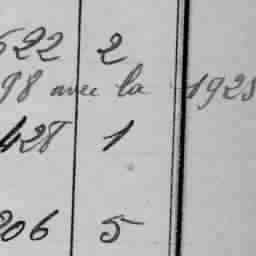 522 2
98 avec la 1925
428 1
206 5